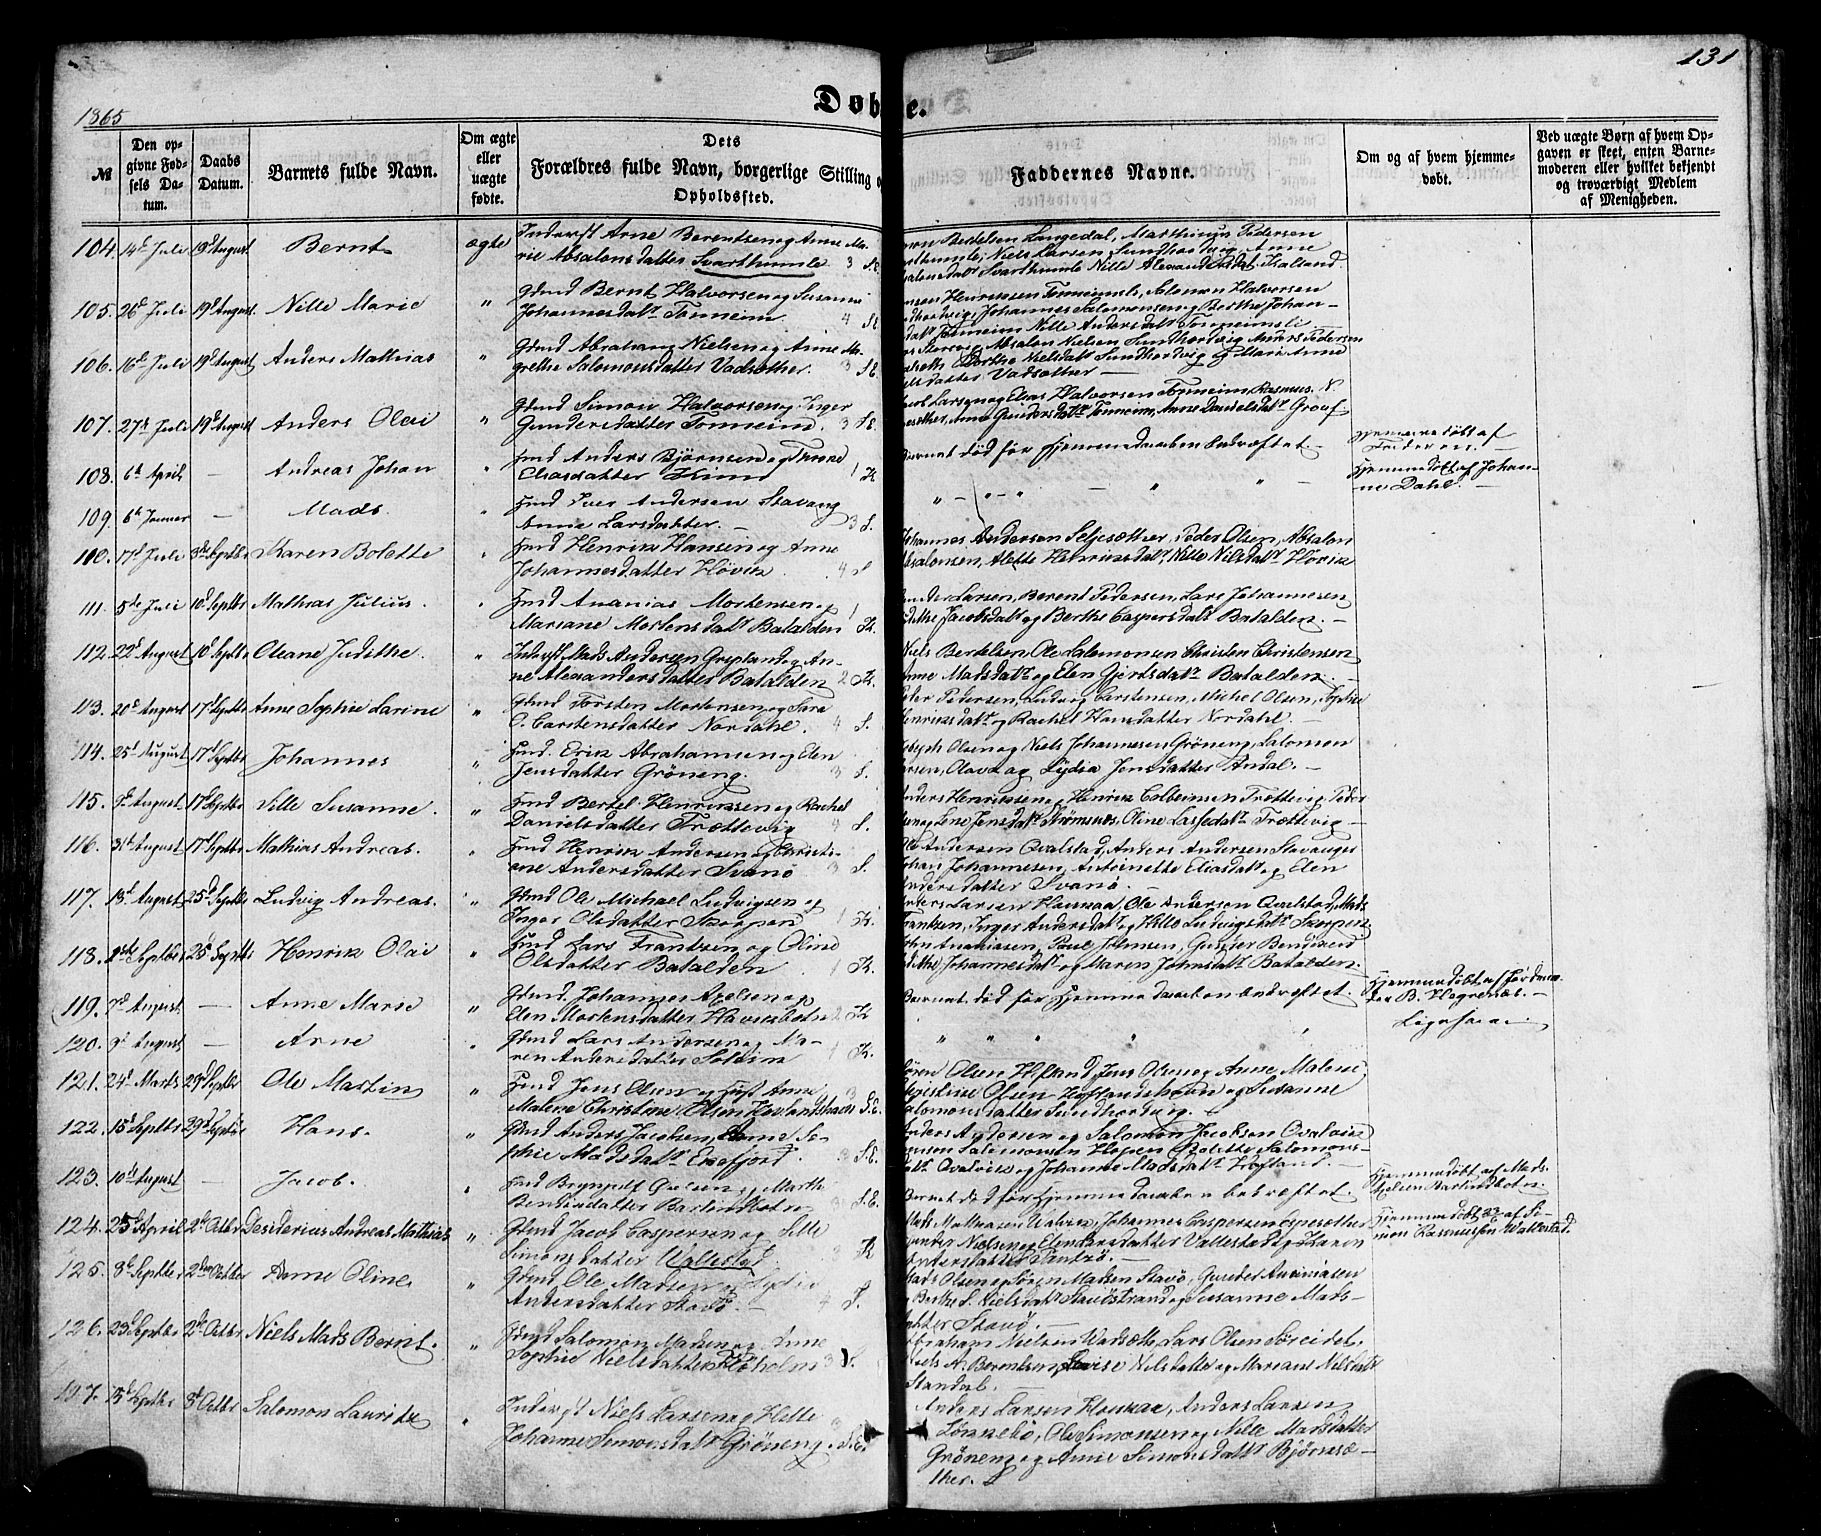 131
1865
Døbte.
№
Den opgivne Fødsels Datum.
Daabs Datum.
Barnets fulde Navn.
Om ægte eller uægte fødte.
Dets Forældres fulde Navn, borgerlige Stilling o
Opholdssted.
Faddernes Navne.
Om og af hvem hjemmedøbt.
Ved uægte Børn af hvem Opgaven er skeet, enten Barnemoderen eller hvilket bekjendt og troværdigt Medlem af Menigheden.
104. 14d Juli 19d August Bernt ægte Inderst Arne Berentsen og Anne Ma-
rie Absalonsdatter Svarthumle 3 S.E.
Bertelsen Langedal, Marthinus Pedersen
Niels Larsen Sundhordvig, Anne
Svarthumle Nille
105. 26d Juli 19d August Nille Marie " Gbmd Bernt Halvorsen og Susanne
Johannesdatr Tonneim 4 S.E.
Henriksen Tonneimsli, Salomon Halvorsen
Johannes Salomonsen og Berthe Johan-
Tonneim Nille Andersdatr Tonneimsli
106. 16d Juli 19d August Anders Mathias " Gbmd Abraham Nielsen og Anne Ma-
grethe Salomonsdatter Vadsæther. 3 S.E.
Absalon Nielsen Sundhordvig Anders Pedersen
Berthe Nielsdatr Sundhordvig og Marie Anne
Vadsæther —
107. 27d Juli 19d August Anders Olai " Gbmd Simon Halvorsen og Inger
Gundersdatter Tonneim. 3 S.E.
Larsen og Elias Halvorsen Tonneim, Rasmus N.
Anne Gundersdatr Tonneim, Anne Danielsdatr Grov
108. 6d April — Andreas Johan " Hmd Anders Bjørnsen og
Eliasdatter Kinn 1 K
Barnet død før Hjemmedaaben bekræftet —
Hjemmedøbt af
109. 6d Januar — Mads. " Hmd Iver Andersen Stavang
Anne Larsdatter. — 3 S.
Hjemmedøbt af Johan-
ne Dahl. —
110. 17d Juli 3de Septbr Karen Bolette " Hmd Henrik Hansen og Anne
Johannesdatter Høvik 4 S
Johannes Andersen Seljesæther, Peder Olsen, Absalon
Absalonsen, Alette Henriksdatr, Nille Nilsdatr Høvik
111. 5te Juli 10d Septbr Mathias Julius. " Hmd Ananias Mortensen og
Mariane Mortensdatr Batalden 1 K.
Larsen, Berent Pedersen, Lars Johannesen
Jacobsdatr og Berthe Caspersdatr Batalden. —
112. 22d August 10d Septbr Oleane Judithe. " Inderst Mads Andersen Grepland og An-
ne Alexandersdatter Batalden 2 K.
Niels Bertelsen, Ole Salomonsen Christen Christensen
Anne Madsdatr og Elen Gjertsdatr Batalden. —
113. 20d August 17d Septbr Anne Sophie Larine " Gbmd Torsten Mortensen og Sara
O. Carstensdatter Nordahl. 4 S.
Peder Pedersen, Ludvig Carstensen, Michel Olsen, Sophie
Henriksdatr og Rachel Hansdatter Nordahl —
114. 25d August 17d Septbr Johannes " Hmd. Erik Abrahamsen og Elen
Jensdatter Grøneng. 3 S.
Olsen og Niels Johannesen Grøneng, Salomon
Olava og Lydia Jensdatter Andal. —
115. August 17d Septbr Sille Susanne. " Hmd Bertel Henriksen og Rachel
Danielsdatter Trættevig 4 S.
Anders Henriksen, Henrik Colbeinsen Trættevig, Peder
Line Jensdatr Strømsnes, Oline Lassedatr Trættevig —
116. 31d August 17d Septbr Mathias Andreas. " Hmd Henrik Andersen og Christi-
ane Andersdatter Svanø 3 S.
Ole Andersen Qvalstad, Anders Andersen Stavanger
Johan Johannesen, Antoinette Eliasdatr og Elen
Andersdatter Svanø. —
117. 13d August 25d Septbr Ludvig Andreas. " Gbmd Ole Michael Ludvigsen og
Inger Olsdatter Skorpen 1 K.
Anders Larsen Houkaa, Ole Andersen Qvalstad, Mads
Frantsen, Inger Andersdatr og Hille Ludvigsdatr Skorpen
118. Septbr 25d Septbr Henrik Olai " Hmd Lars Frantzen og Oline
Olsdatter Batalden 1 K.
John Ananiasen, Paul Johnsen, Gunder
Johannesdatr og Maren Johnsdatr Batalden.
119. 7d August — Anne Marie " Gbmd. Johannes Axelsen og
Elen Mortensdatter Haviksbotn 2 K
Barnet død før Hjemmedaaben bekræftet.
Hjemmedøbt af Jordemo-
der B. Hegrenæs. —
120. 9d August — Arne " Gbmd Lars Andersen og Ma-
ren Andersdatter Solheim 1 K.
Ligesaa
121. 24d Marts 29d Septbr Ole Martin " Hmd Jens Olsen og Hust Anne
Malene Christine Olsen Hovlandshavn S.E.
Søren Olsen Hofland, Jens Olsen og Anne Malene
Olsen Hoflandshavn og Susanne
Salomonsdatter Sundhordvig.
122. 15d Septbr 29d Septbr Hans. " Gbmd Anders Jacobsen, Anne So-
phie Madsdatr Eikefjord. 3 S.E.
Anders Andersen og Salomon Jacobsen Qvalvik
Salomonsen Hopen Bolette Salomons-
datr Qvalvik og Johanne Madsdatr Hofland. —
123. 10d August — Jacob. " Hmd Brynnild og Marthe
Bendixdatter Barlindbotn 3 S.E.
Barnet død før Hjemmedaaben bekræftet.
Hjemmedøbt af Mads
Barlindbotn.
124. 25d April 2d Octbr Desiderius Andreas Mathias " Gbmd Jacob Caspersen og Sille
Simonsdatter Vallestad K
Mads Mathiasen Kalvik, Johannes Caspersen Espesæther
Nielsen og Elen Larsdatter Vallestad og Karen
Hjemmedøbt af Si-
mon Rasmussen Wallestad.
125. 8d Septbr 2den Octbr Anne Oline " Gbmd Ole Madsen og Lydia
Andersdatter Stavø. — 4 S.
Mads Olsen og Søren Madsen Stavø, Gunder Ananiasen
Berthe S. Nielsdatr Stavøstrand og Susanne Mads-
datter Stavø. —
126. 23d Septbr 2d Octbr Niels Mads Bernt. " Gbmd Salomon Madsen og Anne
Sophie Nielsdatter 3 S.
Abraham Nielsen Wadsæther, Lars Olsen Søreidet.
Niels A. Berentsen, Lovise Nilsdatter og Mariane Nilsdatr
Standal. —
127. 13d Septbr 3d Octbr Salomon Lauritz " Inderst Niels Larsen og Hille
Johanne Simonsdatr Grøneng 3 S.E.
Anders Larsen Houkaa, Anders Larsen
Lønnebø, Ole Simonsen og Nille Madsdatter
Grøneng og Anne Simonsdatr Bjørnsæ-
ther.